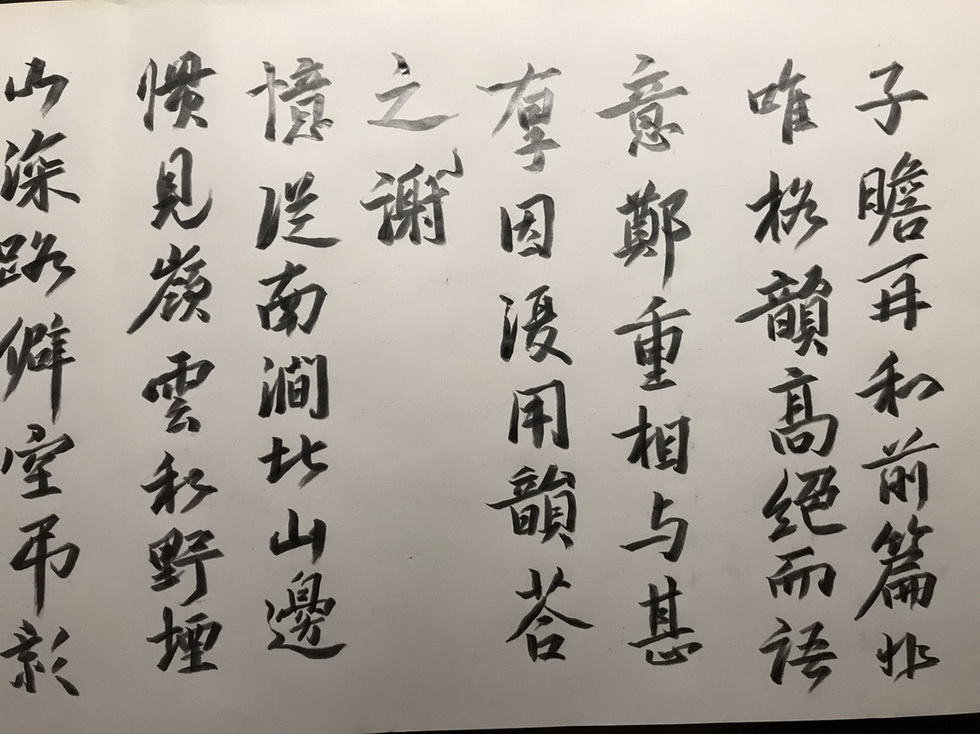 子瞻再和前篇非
唯格韻高絕而語
意鄭重相与甚
厚因復用韻荅
之謝
憶從南澗北山邊
慣見嶺雲和野煙
山深路僻空弔影